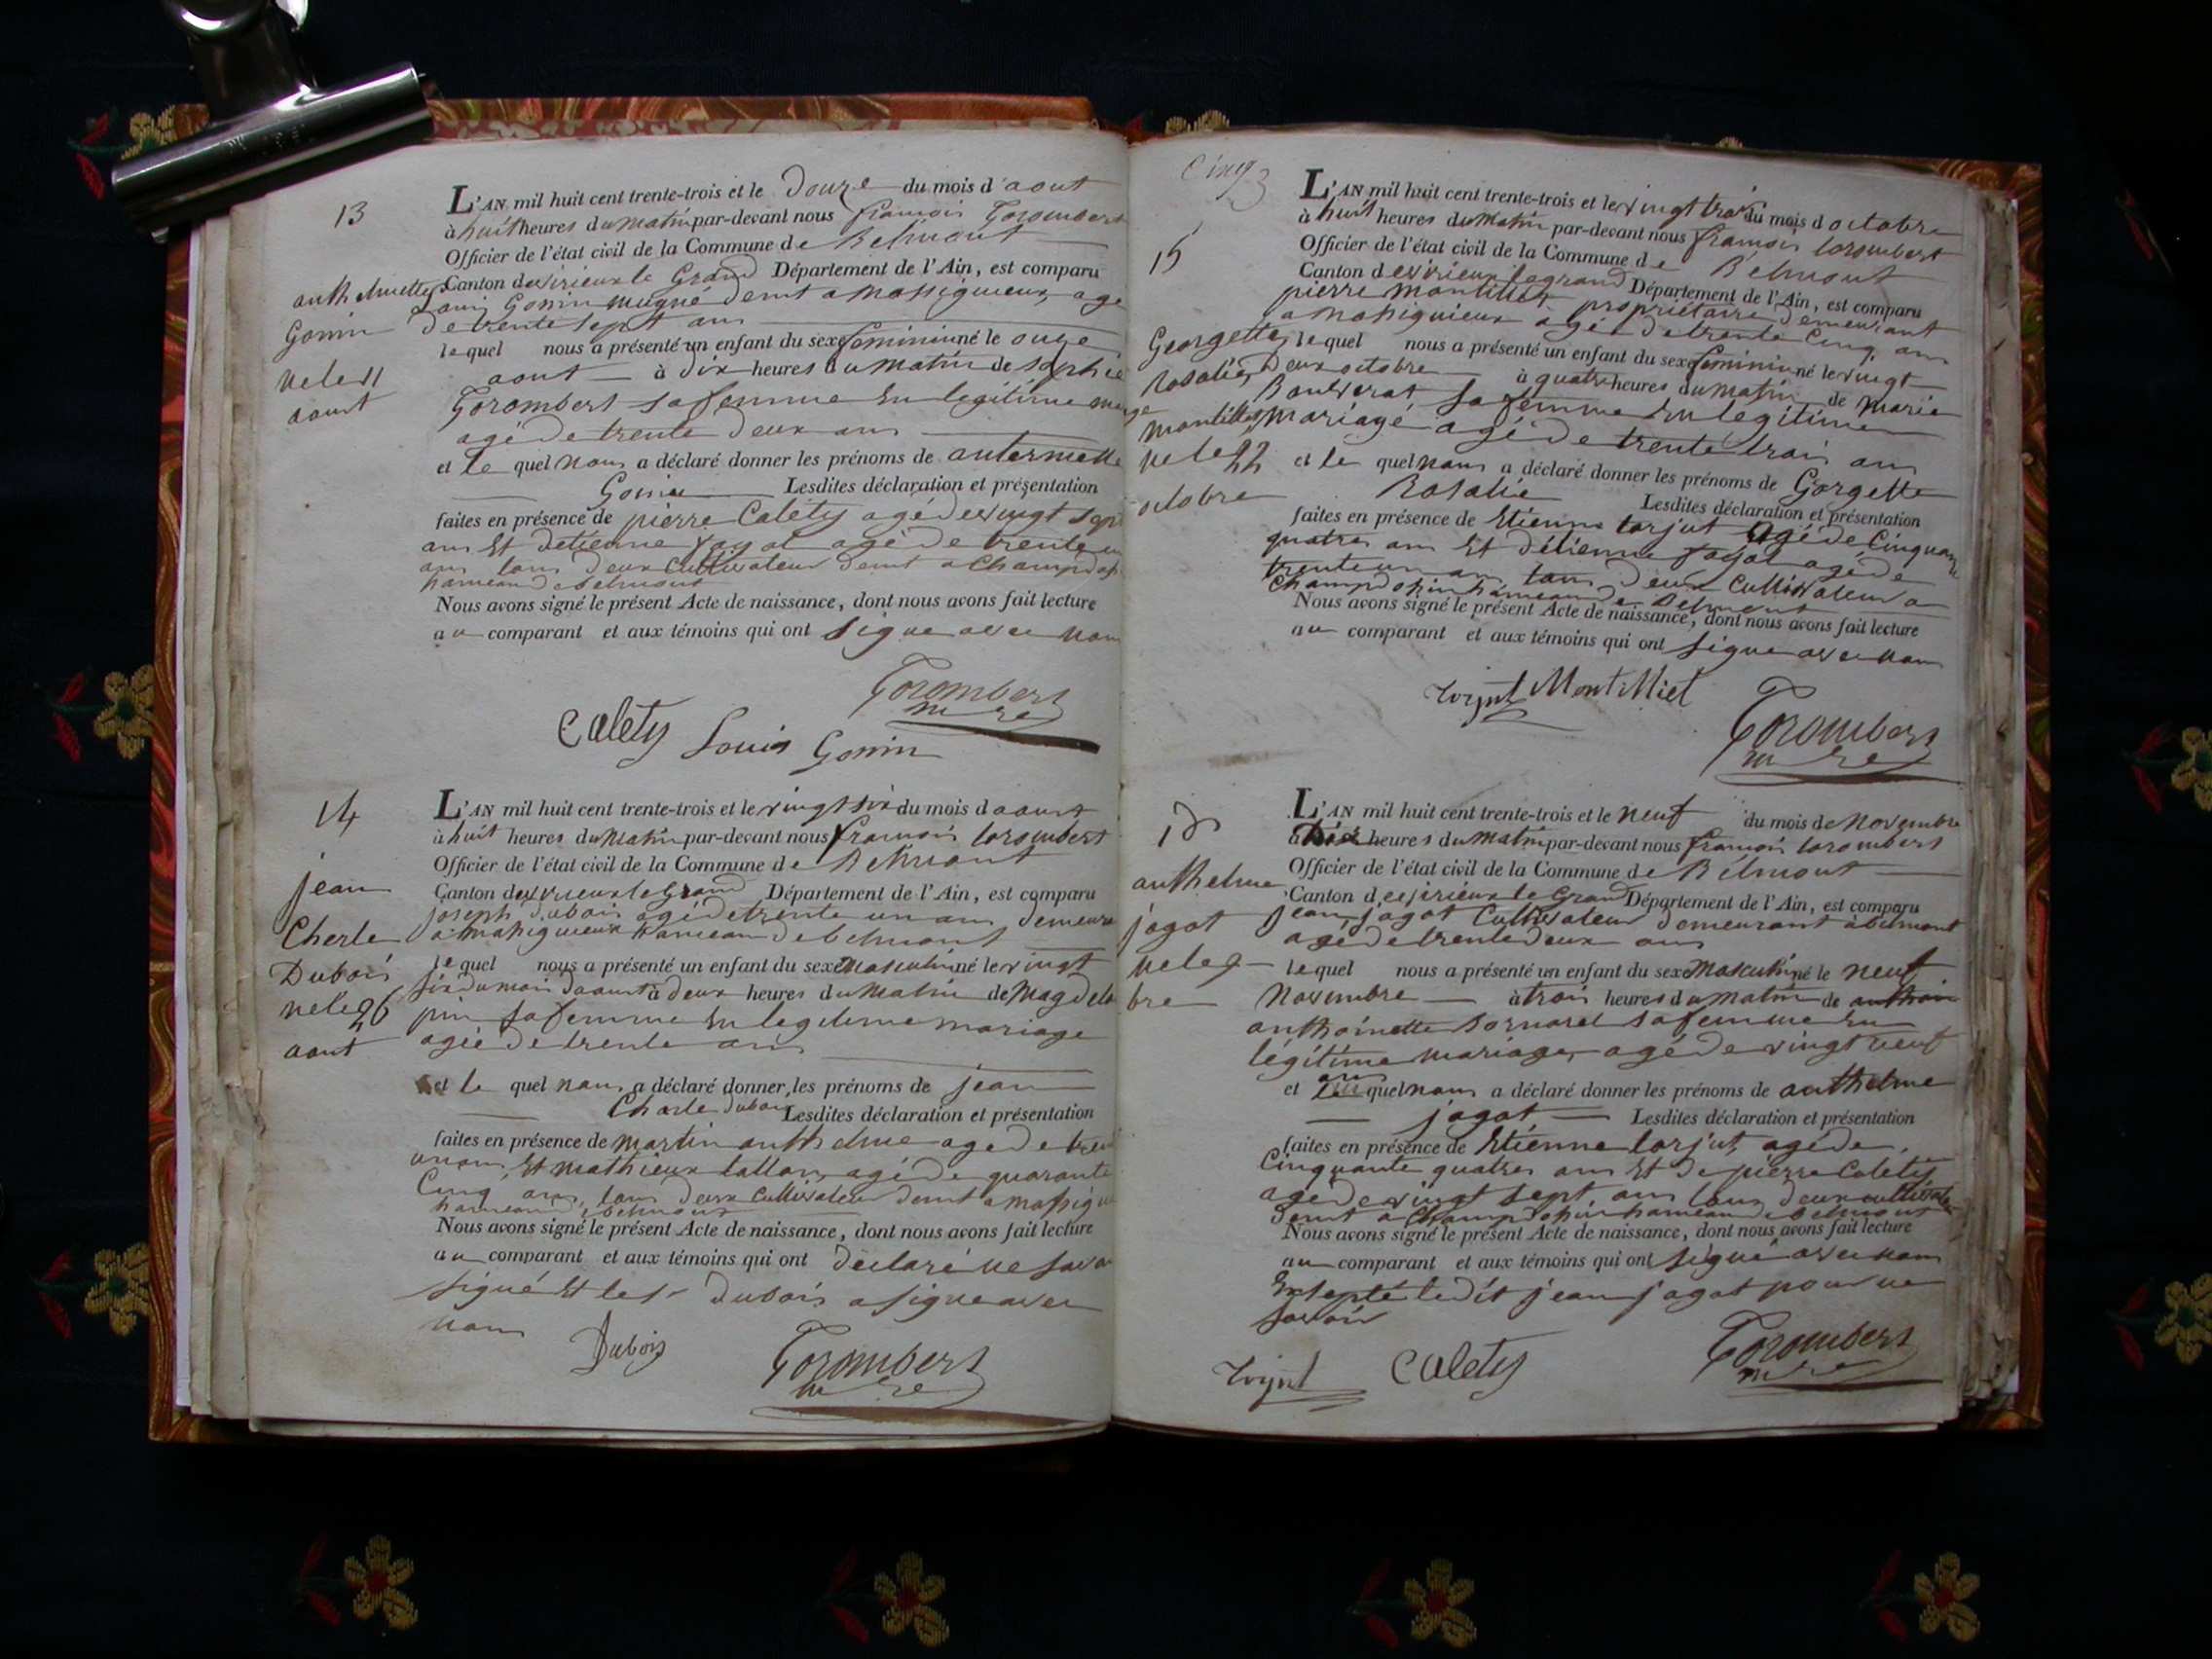 13
L'AN mil huit cent trente-trois et le Douze du mois d'aout
à huit heures du matin par-devant nous francois Gorombert
Officier de l'état civil de la Commune de Belmont
Canton de virieux le Grand Département de l'Ain, est comparu
Gonin demt a massigneux age
de trente sept ans
lequel nous a présenté un enfant du sexe feminin né le onze
aout à dix heures du matin de sophie
Gorombert sa femme En legitime
agé de trente deux ans
et le quel nous a déclaré donner les prénoms de
Gonin Lesdites déclaration et présentation
faites en présence de pierre Calety agé de vingt sept
ans Et detienne fogol agé de trente
ans tous deux Cultivateur demt a Champd
hameau de belmont
Nous avons signé le présent Acte de naissance, dont nous avons fait lecture
au comparant et aux témoins qui ont signe avec nous
anthelmette
Gonin
ne le 11
aout
Gorombert
mre
Calety Louis Gonin
14
L'AN mil huit cent trente-trois et le vingt six du mois d aout
à huit heures du matin par-devant nous francois torombert
Officier de l'état civil de la Commune de Belmont
Canton de virieux le Grand Département de l'Ain, est comparu
joseph dubois agé de trente un ans demeure
a massigneux hameau de belmont
lequel nous a présenté un enfant du sexe masculin né le vingt
six du mois daout à deux heures du matin de Magdela
pin sa femme En legitime mariage
agée de trente ans
et le quel nous a déclaré donner les prénoms de jean
Charle dubois Lesdites déclaration et présentation
faites en présence de martin anthelme age de
un ans, Et mathieux tallon, agé de quarante
Cinq ans, tous deux Cultivateur demt a massig
hameau de belmont
Nous avons signé le présent Acte de naissance, dont nous avons fait lecture
au comparant et aux témoins qui ont déclaré ne
signé Et le sr Dubois a signe avec
nous
jean
Cherle
Dubois
ne le 26
aout
Dubois
Gorombert
mre
Cinq
15
L'AN mil huit cent trente-trois et le vingt trois du mois d octobre
à huit heures du matin par-devant nous francois torombert
Officier de l'état civil de la Commune de Belmont
Canton de virieux legrand Département de l'Ain, est comparu
pierre montillet propriétaire demeurant
a massiguieux agé de trente Cinq ans
lequel nous a présenté un enfant du sexe feminin né le vingt
deux octobre à quatre heures du matin de Marie
sa femme En legitime
mariage agé de trente trois ans
et le quel nous a déclaré donner les prénoms de Gorgette
Rosalie Lesdites déclaration et présentation
faites en présence de Etienne torjut agé de Cinquante
quatre ans Et d'étienne fogol agé de
trente un ans tous deux Cultivateur a
hameau de Belmont
Nous avons signé le présent Acte de naissance, dont nous avons fait lecture
au comparant et aux témoins qui ont signe avec nous
Georgette
rosalie
montillet
ne le 22
octobre
torjut MontMiet
Gorombert
mre
L'AN mil huit cent trente-trois et le neuf du mois de Novembre
à Dix heures du matin par-devant nous francois torombert
Officier de l'état civil de la Commune de Belmont
Canton de virieux le Grand Département de l'Ain, est comparu
jean jagot Cultivateur demeurant à belmont
age de trente deux ans
lequel nous a présenté un enfant du sexe masculin né le neuf
Novembre à trois heures du matin de
anthoinette sa femme En
légitime mariage, agé de vingt neuf
ans
et quel nous a déclaré donner les prénoms de anthelme
jagot Lesdites déclaration et présentation
faites en présence de Etienne torjut, agé de
Cinquante quatre ans Et de pierre Caletÿ
agé de vingt sept ans tous deux
demt a hameau de belmont
Nous avons signé le présent Acte de naissance, dont nous avons fait lecture
au comparant et aux témoins qui ont signé avec nous
Exsepté ledit jean jagot pour ne
savoir
anthelme
jagot
ne le 9
bre
torjut Calety
Gorombert
mre